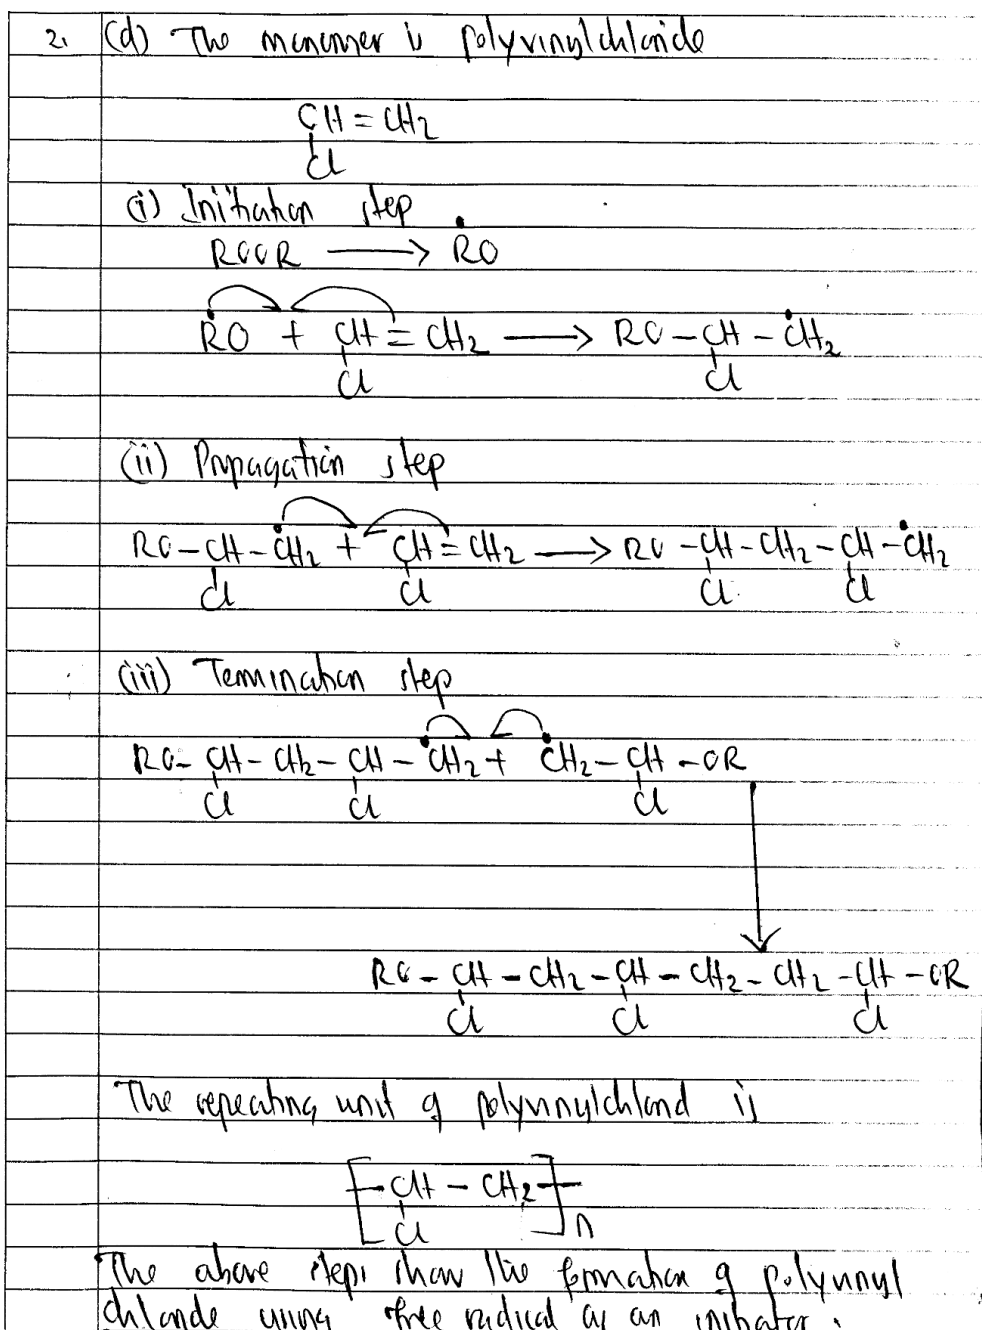 2. (d) The monomer is polyvinylchloride
CH = CH2
Cl
(i) Initiation step
ROOR → ṘO
ṘO + CH = CH2 → RO – CH – ĊH2
Cl Cl
(ii) Propagation step
RO – CH – ĊH2 + CH = CH2 → RO – CH – CH2 – CH – ĊH2
Cl Cl Cl Cl
(iii) Termination step
RO – CH – CH2 – CH – ĊH2 + ĊH2 – CH – OR
Cl Cl Cl
↓
RO – CH – CH2 – CH – CH2 – CH2 – CH – OR
Cl Cl Cl
The repeating unit of polyvinylchlorid is
[ – CH – CH2 – ]n
Cl
The above steps show the formation of polyvinyl
chloride using free radical as an initiator.